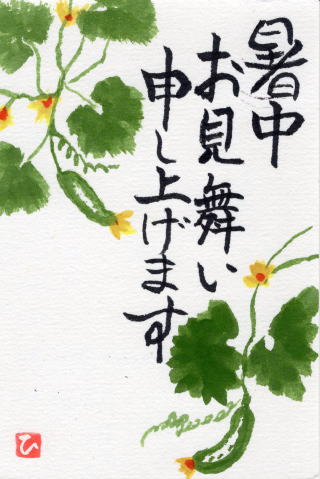 暑中
お見舞い
申し上げます
ひ